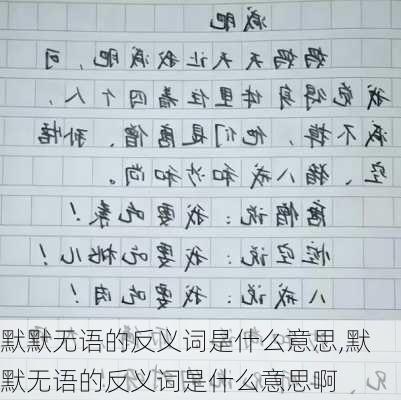 减肥
妈妈天天让我减肥，可
我觉得身体里住着四个人，
减不掉，他们是唐僧、孙悟
空、猪八戒和沙和尚。
唐僧说：我要吃素！
悟空说：我要吃桃儿！
八戒说：我要吃肉！
默默无语的反义词是什么意思,默
默无语的反义词是什么意思啊